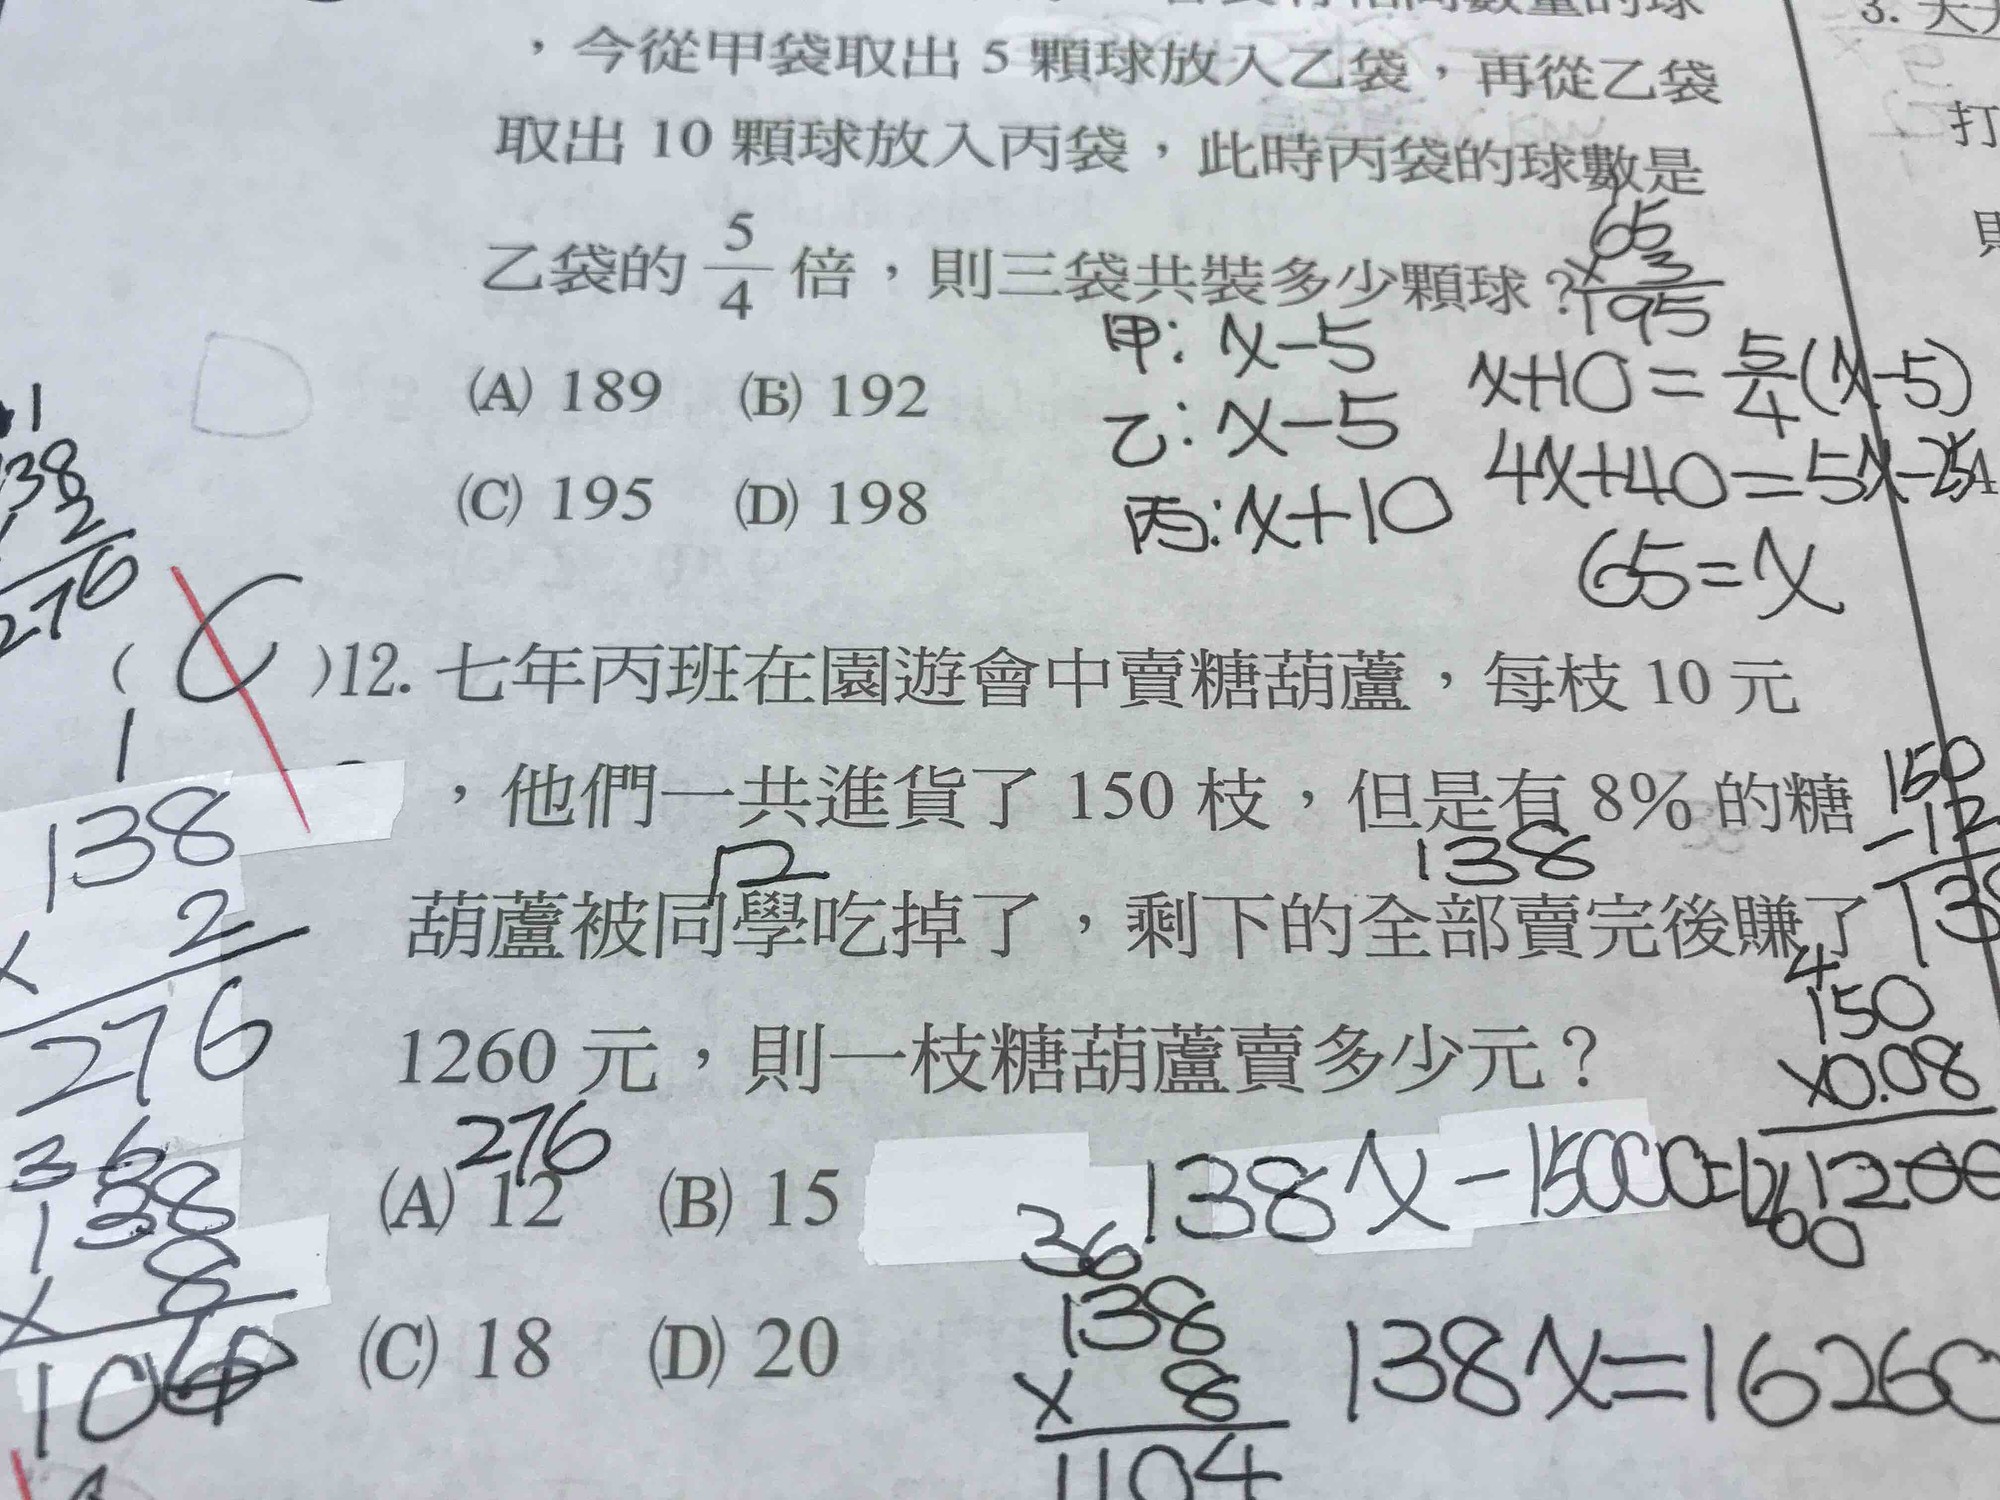 ，今從甲袋取出 5 顆球放入乙袋，再從乙袋
取出 10 顆球放入丙袋，此時丙袋的球數是
乙袋的 5/4 倍，則三袋共裝多少顆球？
65
× 3
195
(A) 189 (B) 192
(C) 195 (D) 198
甲: x-5
乙: x-5
丙: x+10
x+10=5/4(x-5)
4x+40=5x-25
65=x
1
138
2
276
( C )12. 七年丙班在園遊會中賣糖葫蘆，每枝 10 元
，他們一共進貨了 150 枝，但是有 8% 的糖
12
138
葫蘆被同學吃掉了，剩下的全部賣完後賺了
1260 元，則一枝糖葫蘆賣多少元？
276
(A) 12 (B) 15
(C) 18 (D) 20
1
138
× 2
276
36
138
× 8
150
-12
4
150
×0.08
1200
138x-1500=1260
138x=16260
36
138
× 8
1104
3.
打